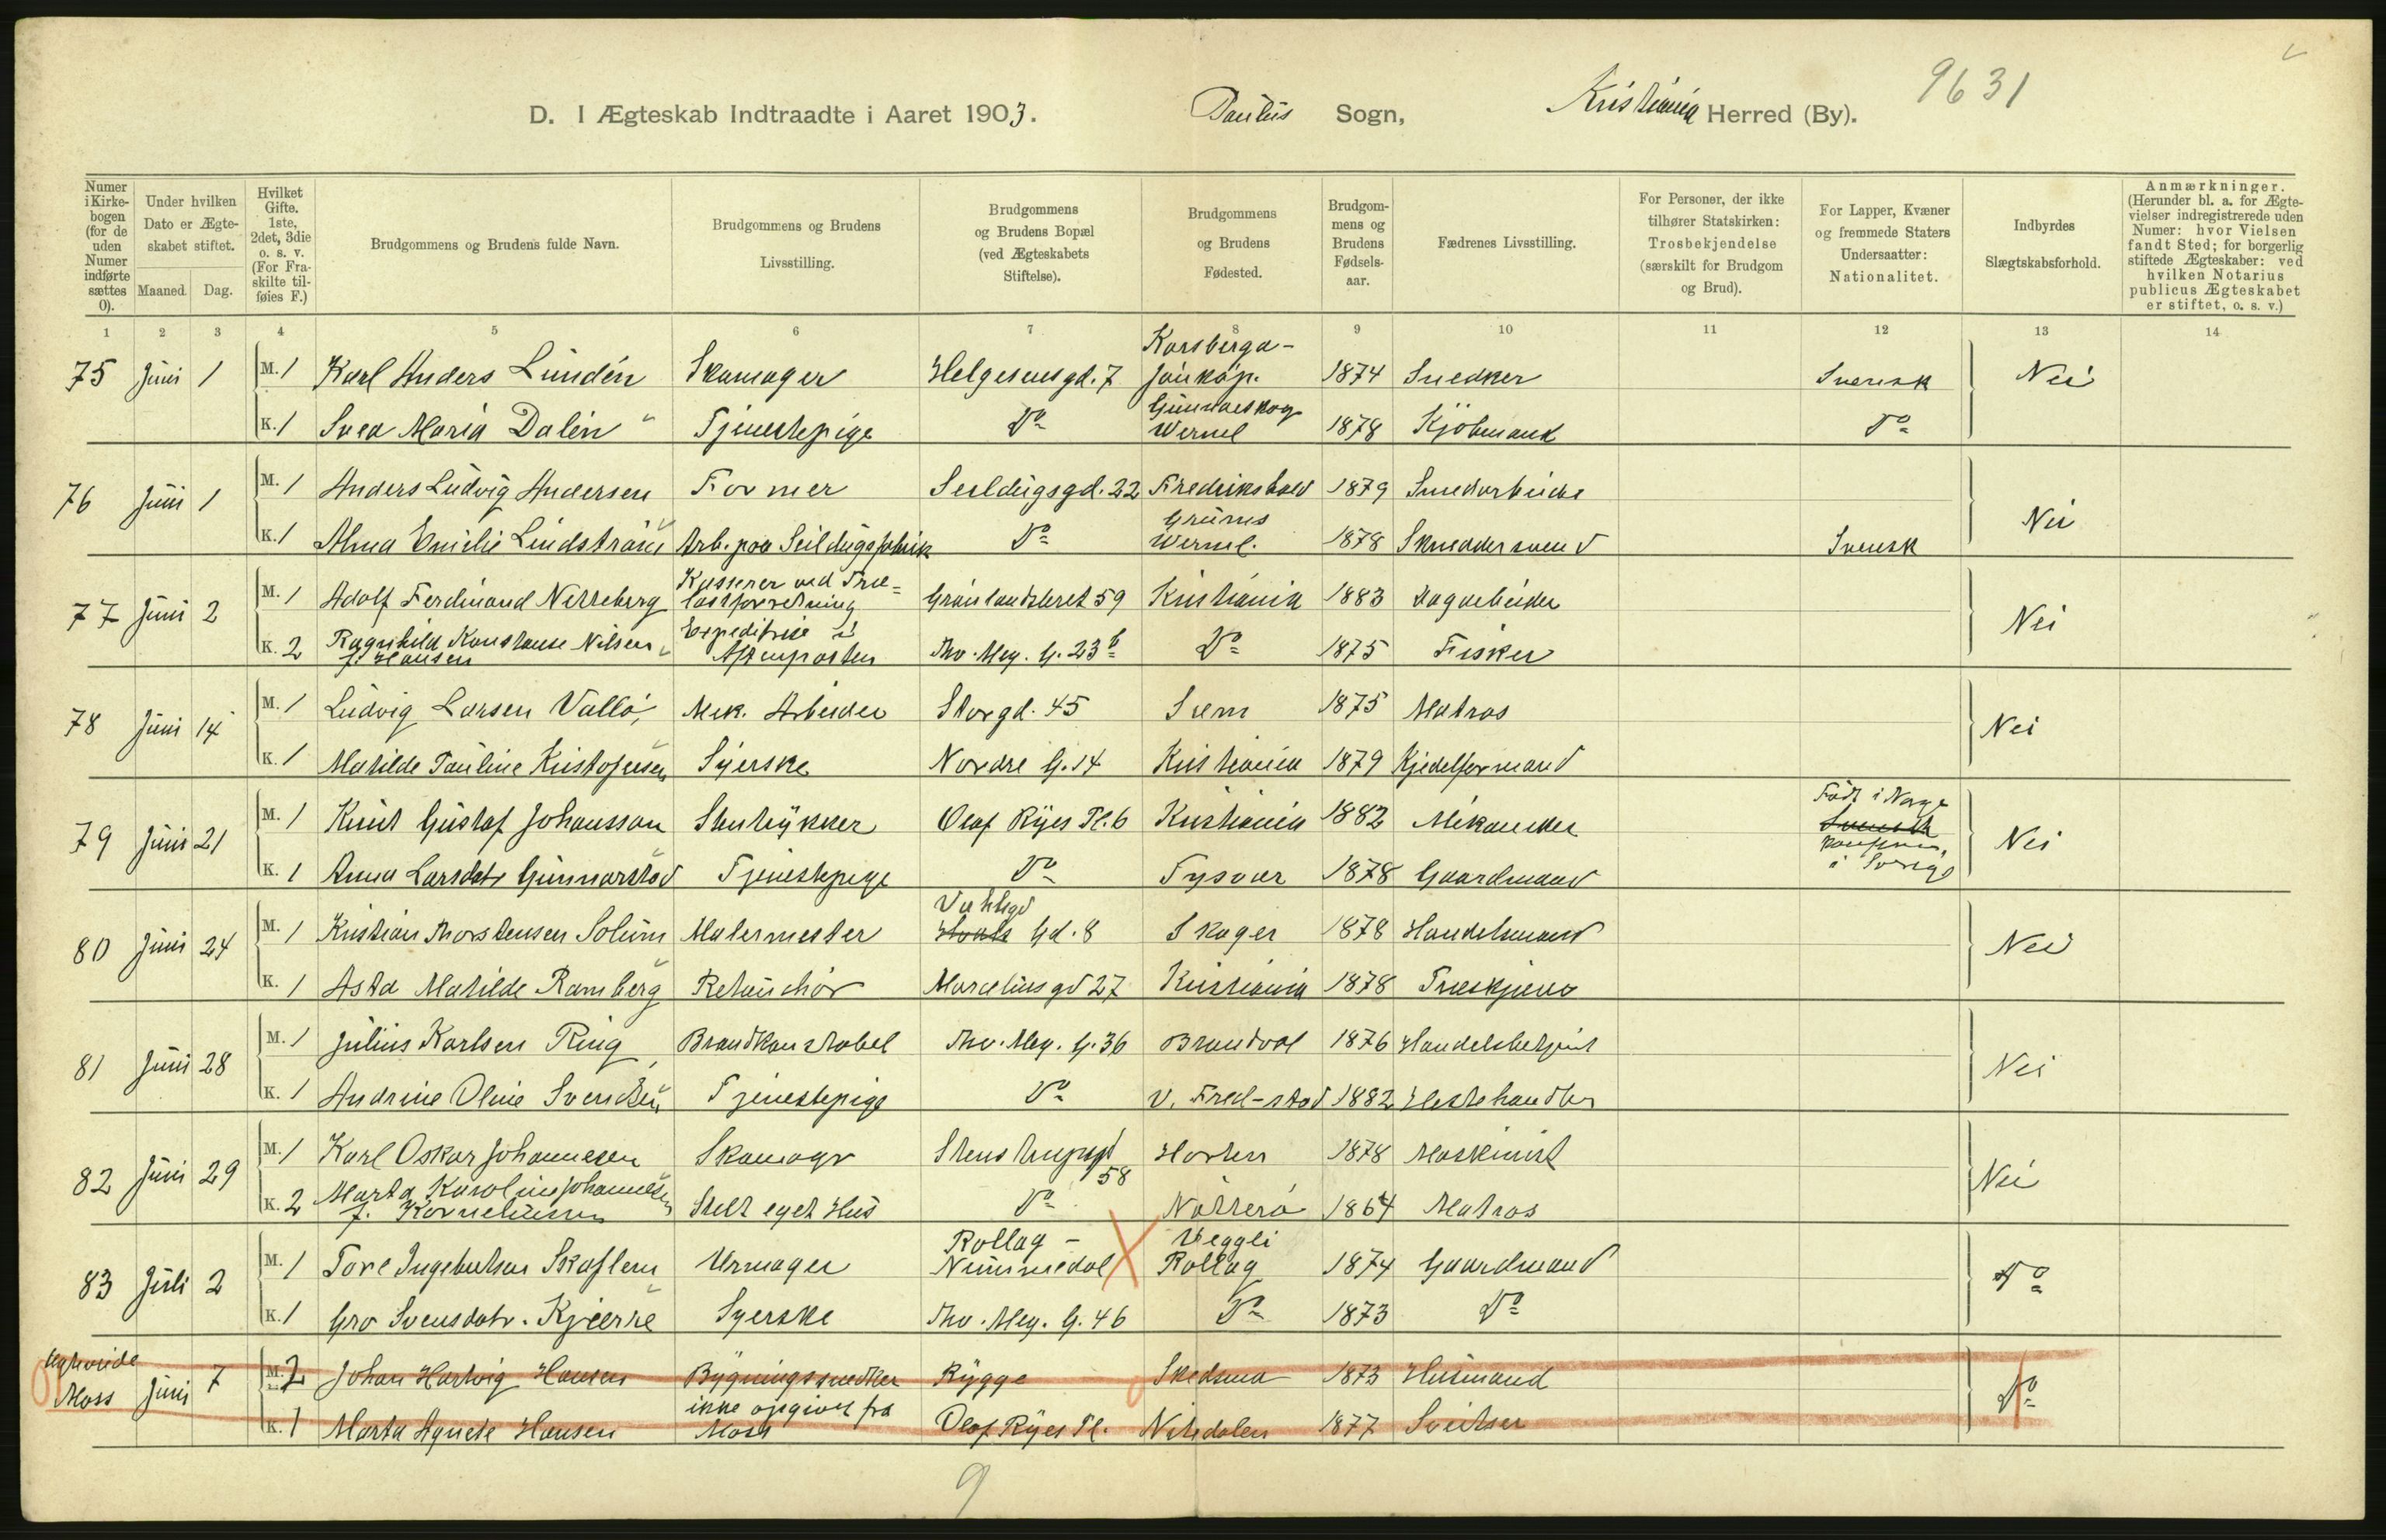 9631
D. I Ægteskab Indtraadte i Aaret 1903. Paulus Sogn, Kristiania Herred (By).
Numer i Kirkebogen (for de uden Numer indførte sættes 0).
Under hvilken Dato er Ægteskabet stiftet.
Maaned. Dag.
Hvilket Gifte. 1ste, 2det, 3die o. s. v. (For Fraskilte tilføies F.)
Brudgommens og Brudens fulde Navn.
Brudgommens og Brudens Livsstilling.
Brudgommens og Brudens Bopæl (ved Ægteskabets Stiftelse).
Brudgommens og Brudens Fødested.
Brudgommens og Brudens Fødselsaar.
Fædrenes Livsstilling.
For Personer, der ikke tilhører Statskirken: Trosbekjendelse (særskilt for Brudgom og Brud).
For Lapper, Kvæner og fremmede Staters Undersaatter: Nationalitet.
Indbyrdes Slægtskabsforhold.
Anmærkninger. (Herunder bl. a. for Ægtevielser indregistrerede uden Numer: hvor Vielsen fandt Sted; for borgerlig stiftede Ægteskaber: ved hvilken Notarius publicus Ægteskabet er stiftet, o. s. v.)
1 2 3 4 5 6 7 8 9 10 11 12 13 14
75 Juni 1 M. 1 Karl Anders Lindén Skomager Helgesensgd. 7 Korsberga - Jönköp. 1874 Snedker Svensk Nei
K. 1 Svea Maria Dalén Tjenestepige Do Gunnarskog Werml 1878 Kjöbmand Do
76 Juni 1 M. 1 Anders Ludvig Andersen Former Seildugsgd. 22 Fredrikshald 1879 Smedarbeider Nei
K. 1 Alma Emilie Lindström Arb. paa Seildugsfabrik Do Grums Werml. 1878 Skræddersvend Svensk
77 Juni 2 M. 1 Adolf Ferdinand Netteberg Kasserer ved Træ=lastforretning Grönlandsleret 59 Kristiania 1883 Dagarbeider Nei
K. 2 Ragnhild Konstanse Nilsen f. Hansen Expeditrise i Aftenposten Thv. Mey. G. 23b Do 1875 Fisker
78 Juni 14 M. 1 Ludvig Larsen Vallö Mek. Arbeider Storgd. 45 Sem 1875 Matros Nei
K. 1 Matilde Pauline Kristofersen Syerske Nordre G. 14 Kristiania 1879 Kjedelformand
79 Juni 21 M. 1 Knut Gustaf Johansson Stentrykker Olaf Ryes Pl. 6 Kristiania 1882 Mekaniker Født i Norge Svensk konfirm. i Sverige Nei
K. 1 Anna Larsdatr Gunnarstad Tjenestepige Do Tysvær 1878 Gaardmand
80 Juni 24 M. 1 Kristian Thorstensen Solum Malermester Vahlsgd Gd. 8 Skoger 1878 Handelsmand Nei
K. 1 Asta Matilde Ramberg Retouchör Marcelius gd 27 Kristiania 1878 Træskjærer
81 Juni 28 M. 1 Julius Karlsen Ring Brandkonstabel Thv. Mey. G. 36 Brandval 1876 Handelsbetjent Nei
K. 1 Andrine Oline Svendsen Tjenestepige Do V. Fred-stad 1882 Hestehandler
82 Juni 29 M. 1 Karl Oskar Johannesen Skomagr Stenstrupsgd 58 Horten 1878 Maskinist Nei
K. 2 Marta Karoline Johannesen f. Korneliussen Stelt eget Hus Do Nötterö 1864 Matros
83 Juli 2 M. 1 Tore Ingebretsen Skaflem Urmager Rollag - Nummedal Veggli Rollag 1874 Gaardmand Do
K. 1 Gro Svensdatr. Kjærre Syerske Thv. Mey. G. 46 Do 1873 Do
Moss Juni 7 M. 2 Johan Hartvig Hansen Bygningssnedker Rygge Skedsmo 1873 Husmand Do
K. 1 Marta Agnete Hansen ikke opgivet fra Moss Olaf Ryes Pl. Nitedalen 1877 Sveitser
9